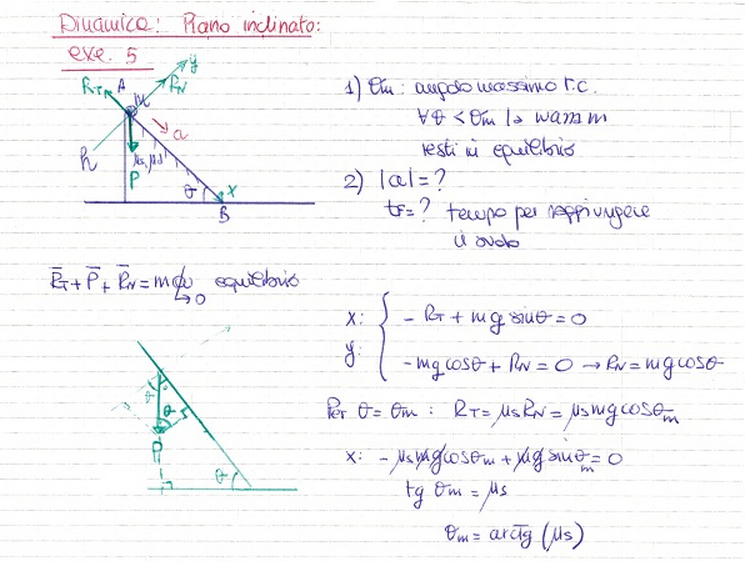 Dinamica: Piano inclinato:
exe. 5
y
RT A M RN
a
h μs, μd
P θ x
B
1) θm: angolo massimo t.c.
∀θ < θm la massa m
resti in equilibrio
2) |a| = ?
tF = ? tempo per raggiungere
il suolo
R̄T + P̄ + R̄N = ma equilibrio
↳ 0
x: { - RT + mg sinθ = 0
y: -mg cosθ + RN = 0 → RN = mg cosθ
Per θ = θm: RT = μs RN = μs mg cosθm
x: - μs mg cosθm + mg sinθm = 0
tg θm = μs
θm = arctg (μs)
θ
θ
P
θ